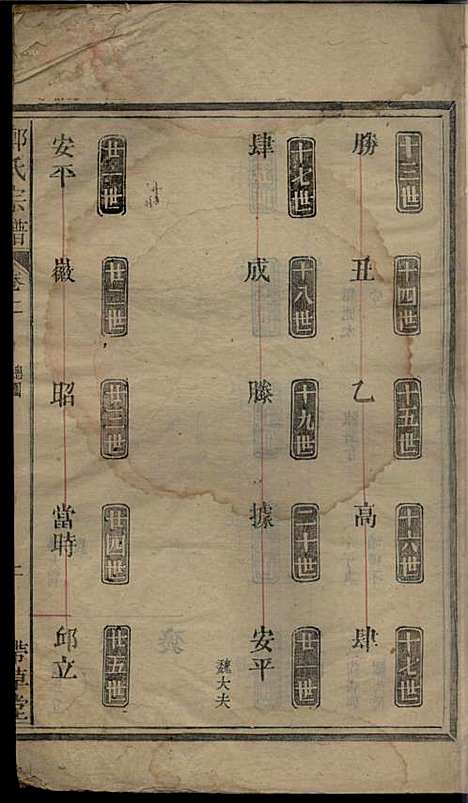 十三世
十四世
十五世
十六世
十七世
勝
丑
乙
高
肆
十七世
十八世
十九世
二十世
廿一世
肆
成
滕
據
安平
魏大夫
廿一世
廿二世
廿三世
廿四世
廿五世
安平
徽
昭
當時
邱立
氏宗譜
卷二
總圖
草堂